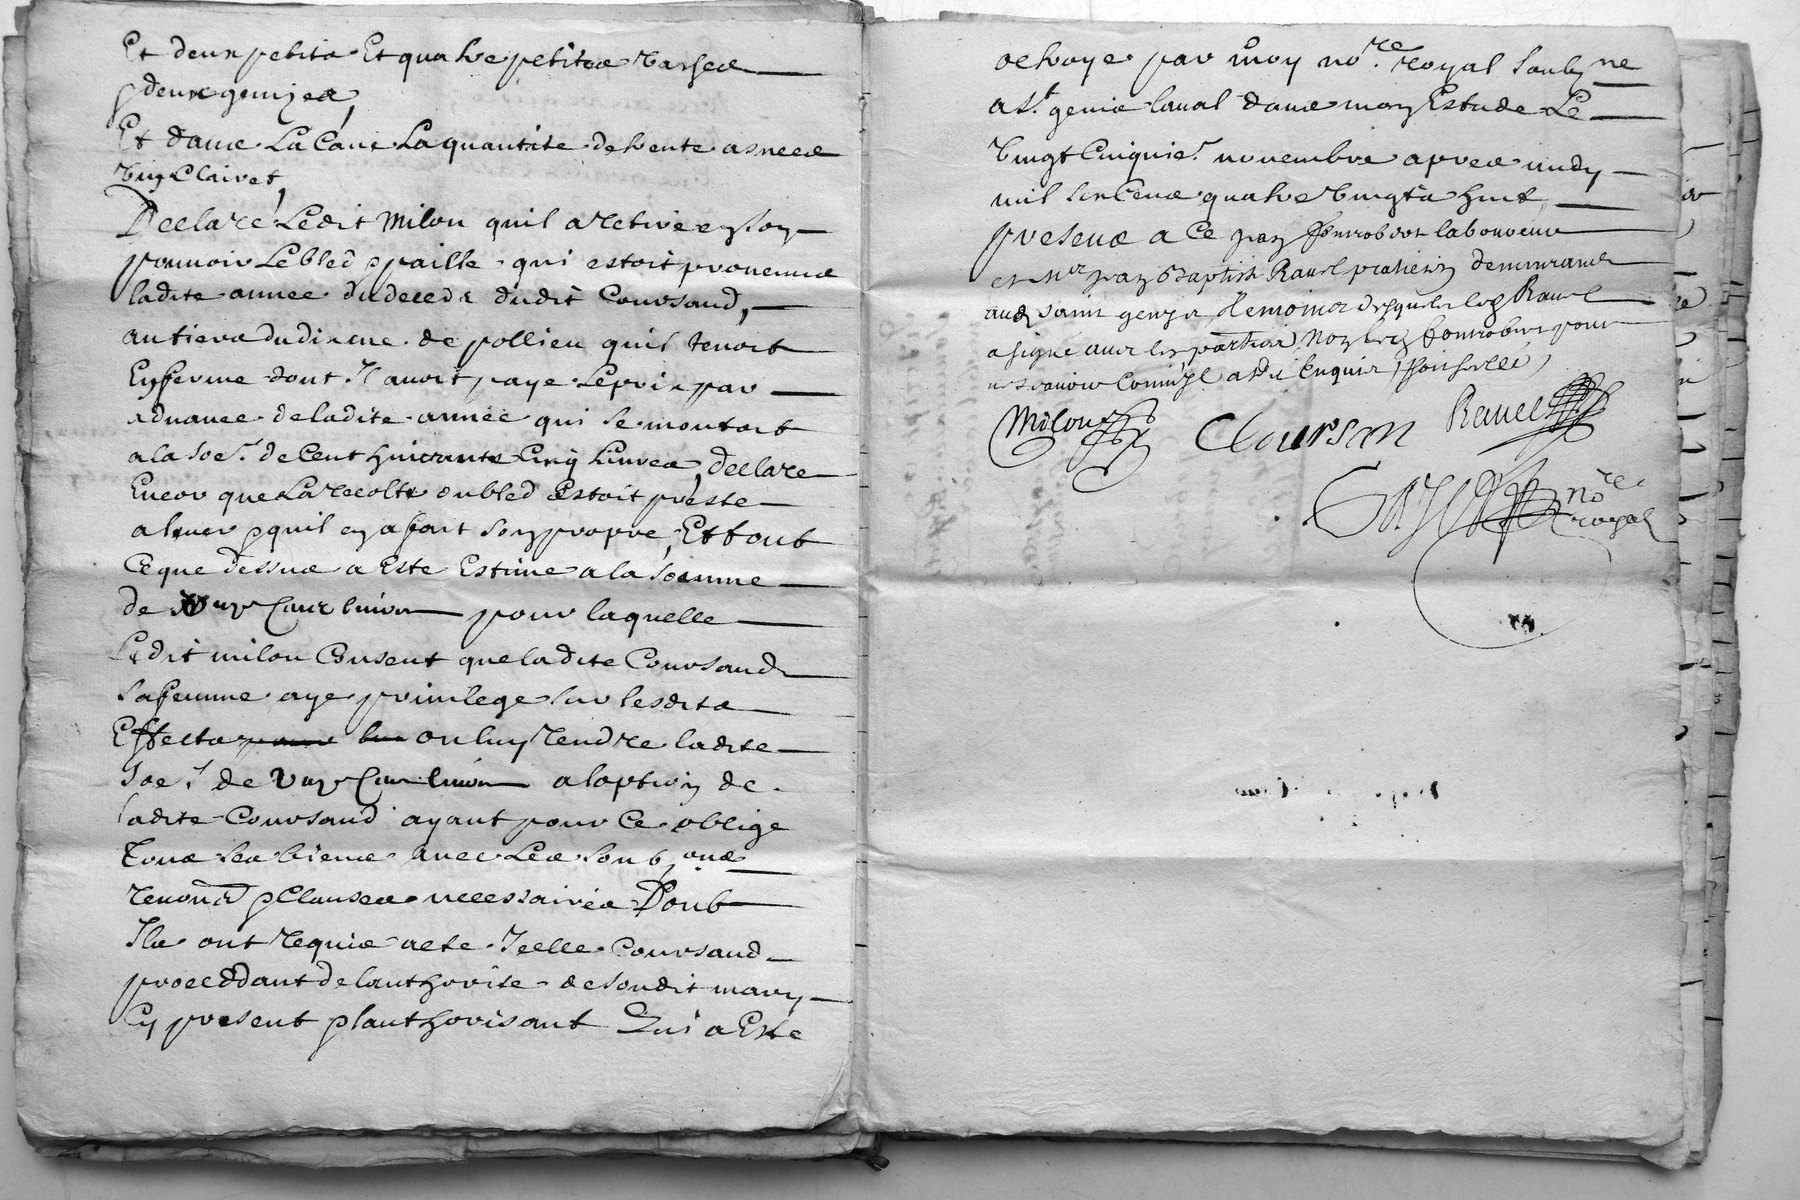 Et deux petits Et quatre petites vasches
& deux genijes,
Et dans La Cave La quantite de trente asnees
vin Clairet,
Declare Ledit Milon quil a retire en son
pouvoir Le bled & paille qui estoit provenue
ladite annee du deceds dudit Coursand,
au tiers du disme de pollieu quil tenoit
En ferme dont Il avoit paye Le prix par
advance de ladite annee qui se montoit
a la soe. de Cent huictante Cinq Livres, declare
Encor que La recolte du bled Estoit preste
a lever & quil en a fait son propre, Et tout
Ce que dessus a Este Estime a la somme
de livres pour laquelle
Ledit milon Consent que ladite Coursand
sa femme aye privilege sur lesdits
Effects ou luy rendre ladite
soe. de livres a loption de
ladite Coursand ayant pour Ce oblige
Tous ses biens avec Les soub.ons
renon.on & Clauses necessaires Dont
Ils ont requis acte Icelle Coursand
proceddant de lauthorite de sondit mary
Cy present & lauthorisant Qui a Este
octroye par moy no.re royal soubs.ne
a St. genis laval dans mon Estude Le
vingt Cinquie. novembre apres midy
mil six Cens quatre vingts huit
presens a Ce jean laboureur
et Mre jean Baptiste Ravel praticien demeurans
aud saint genis temoins desquels led Ravel
a signe avec les parties Non led pour
ne scavoir Comme Il a dit Enquis
Milon Coursan Ravel
no.re
royal